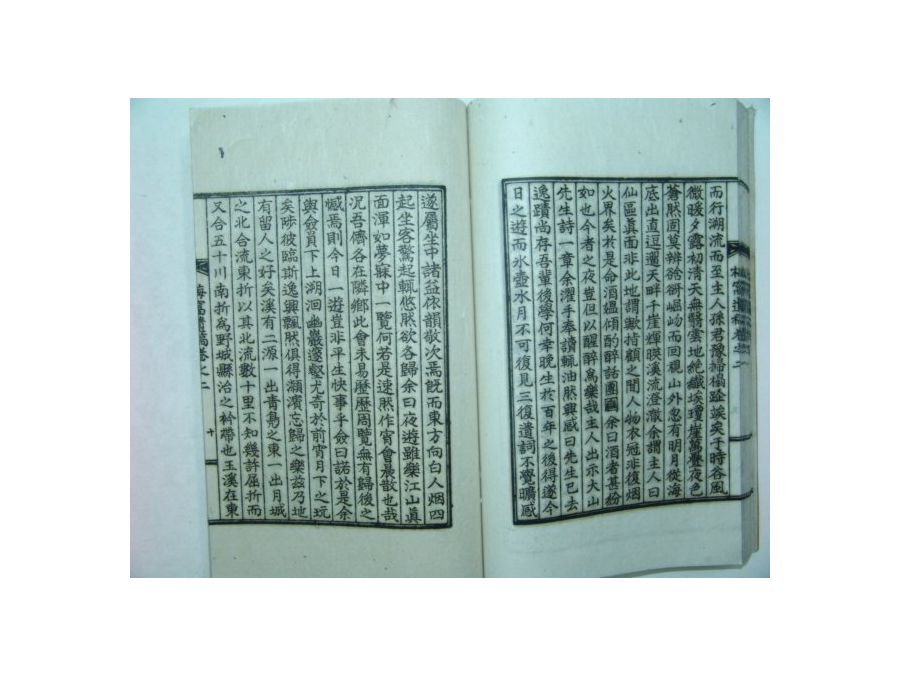 而行溯流而至主人孫君豫掃榻跧竢矣于時谷風
微暖夕露初清天無翳雲地絶纖埃瓊崖萬疊夜色
蒼然固莫辨徐徐崛岉而回視山外忽有明月從海
底出直逗遛天畔千崖輝暎溪流澄澈余謂主人曰
仙區眞面非此地謂歟指顧之間人物衣冠非復烟
火界矣於是命酒媼傾酌醉話團圓余曰酒者甚粉
如也今者之夜豈但以醒醉爲樂哉主人出示大山
先生詩一章余濯手奉讀輒油然興感曰先生已去
逸蹟尚存吾輩後學何幸晩生於百年之後得遂今
日之遊而氷壺水月不可復見三復遺詞不覺曠感
遂屬坐中諸益依韻敬次焉旣而東方向白人烟四
起坐客驚起輒悠然欲各歸余曰夜遊雖樂江山眞
面渾如夢寐中一覽何若是速然作宵會晨散也哉
况吾儕各在隣鄕此會未易歷歷周覽無有歸後之
憾焉則今日一遊豈非平生快事乎僉曰諾於是余
與僉員下上湖洄幽巖邃壑尤奇於前宵月下之玩
矣陟彼臨斯逸興飄然俱得瀕濱忘歸之樂兹乃地
有留人之好矣溪有二源一出靑鳧之東一出月城
之北合流東折以其北流數十里不知幾許屈折而
又合五十川南折爲野城縣治之衿帶也玉溪在東
海窩遺稿卷之二
十